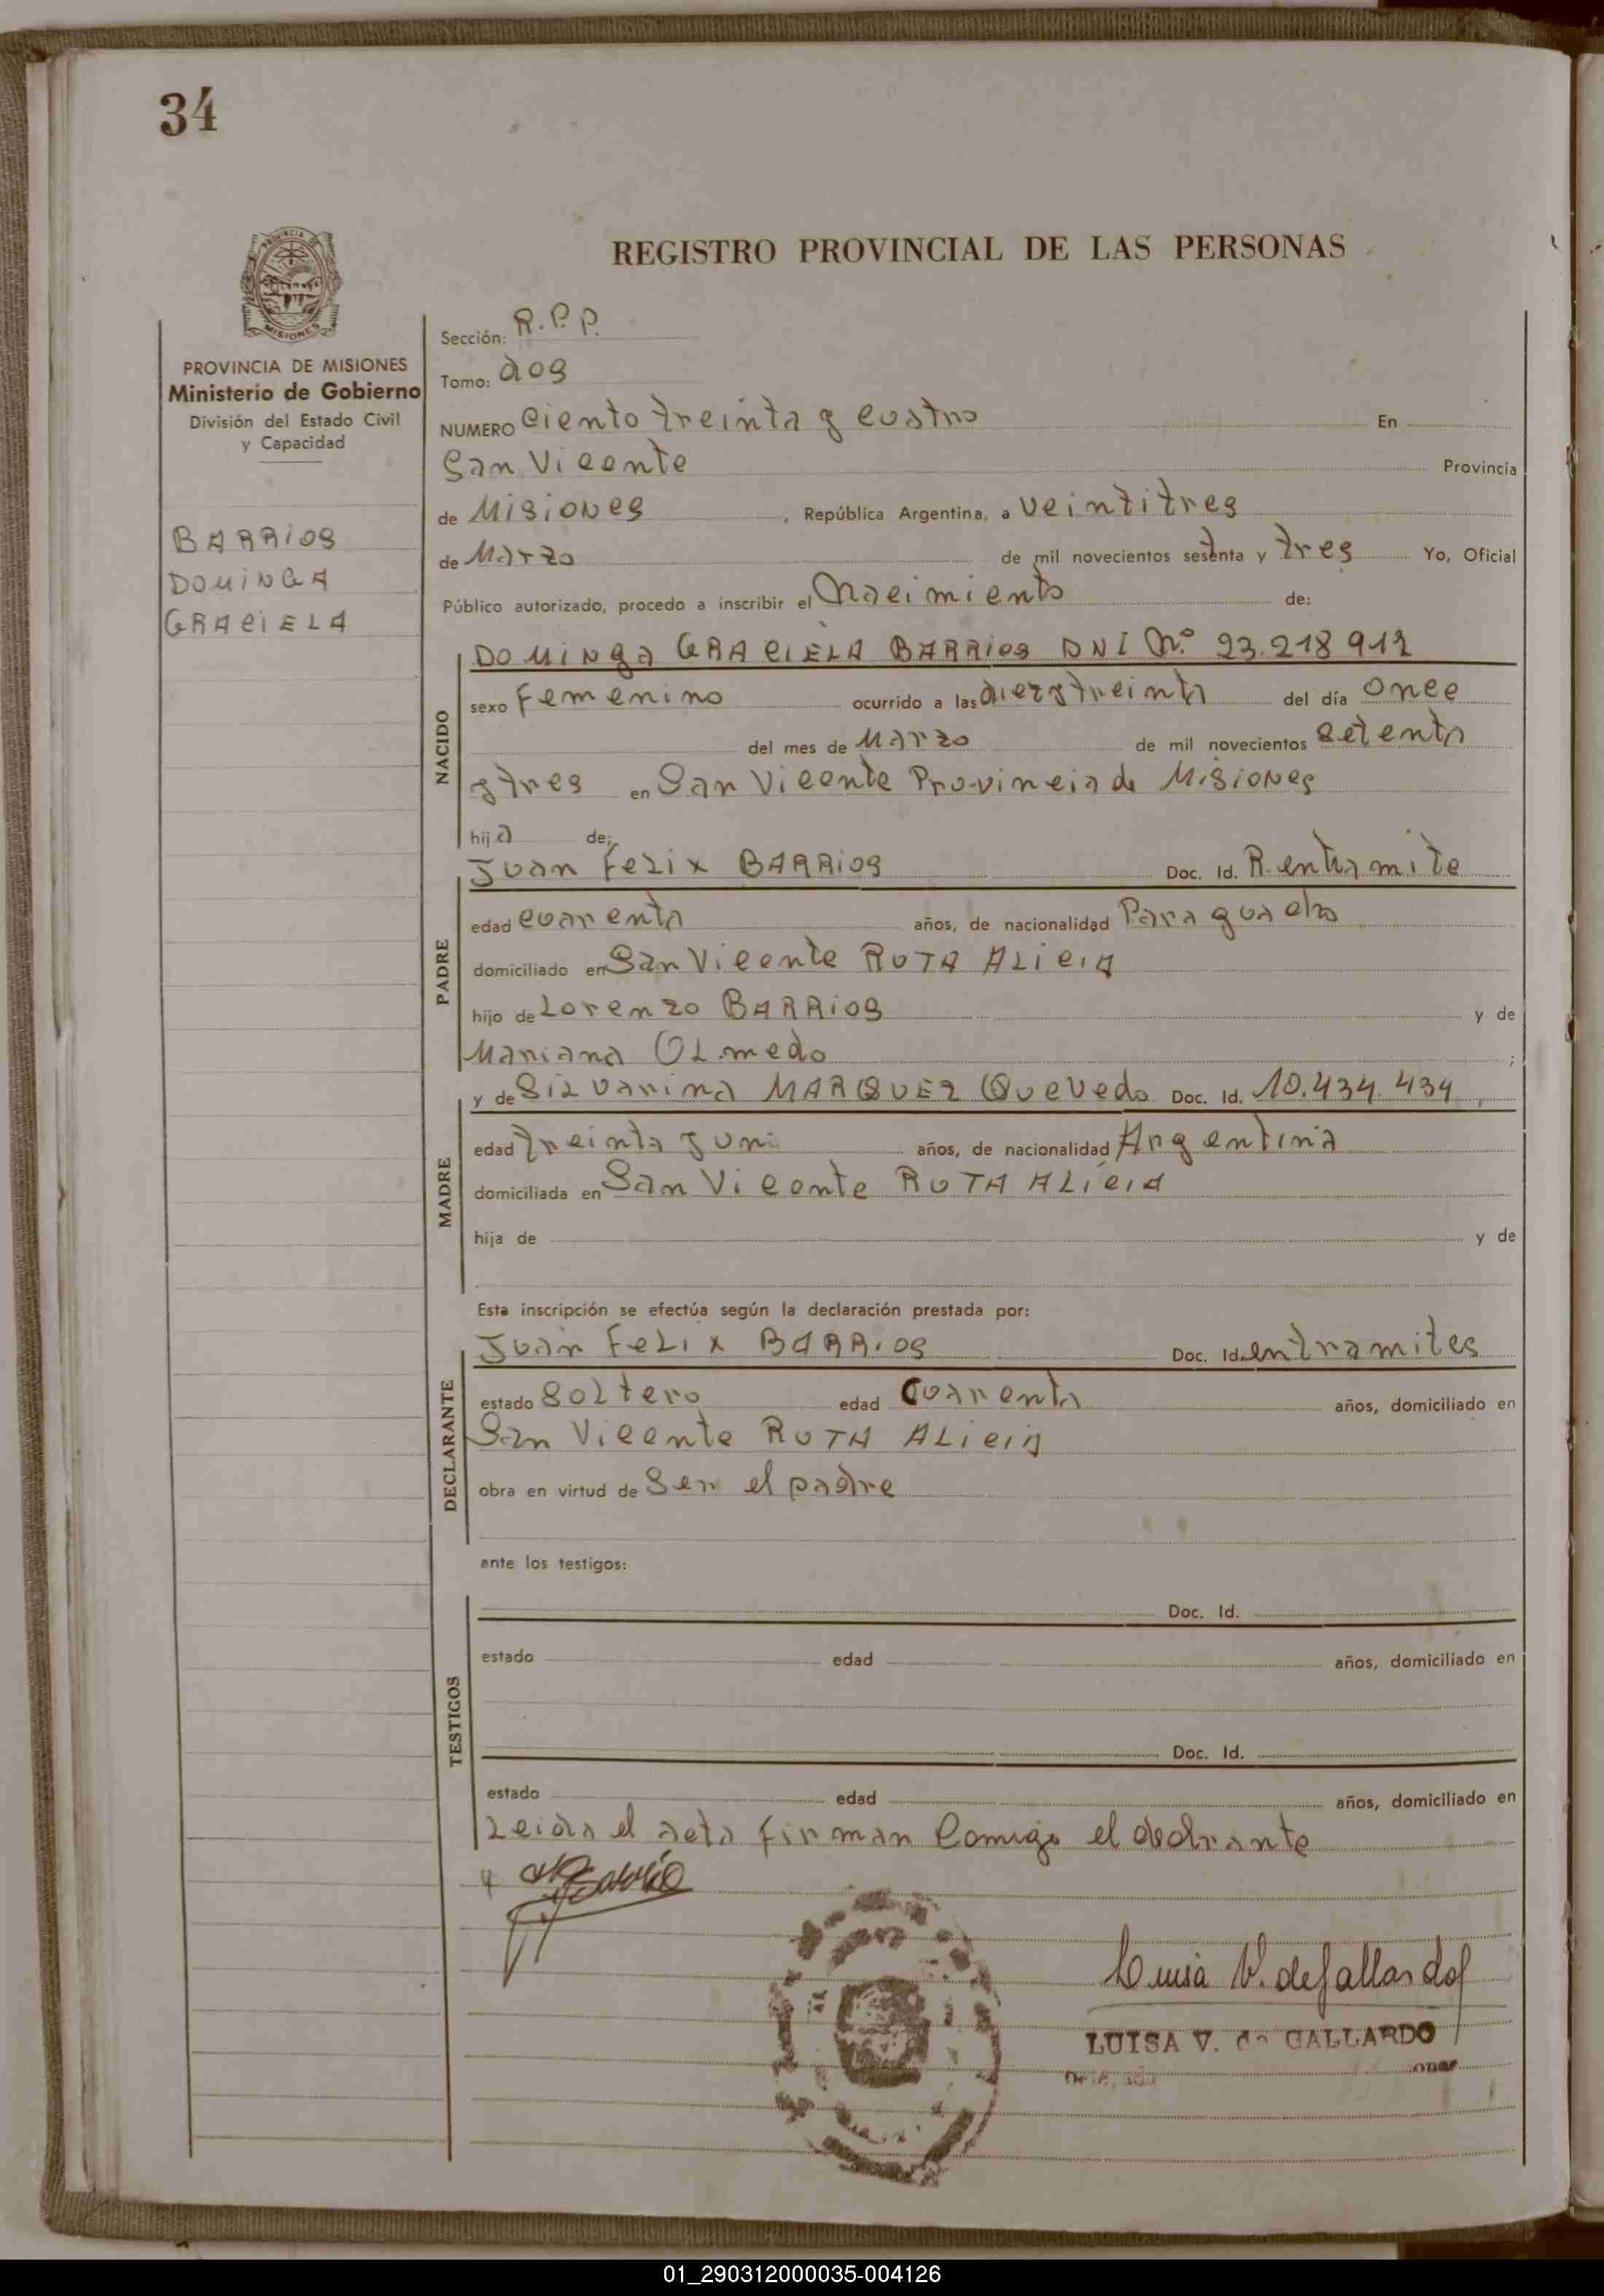 34
REGISTRO PROVINCIAL DE LAS PERSONAS
PROVINCIA DE MISIONES
Ministerio de Gobierno
División del Estado Civil
y Capacidad
BARRIOS
DOMINGA
GRACIELA
Sección: R.P.P.
Tomo: dos
NUMERO Ciento treinta y cuatro En
San Vicente Provincia
de Misiones, República Argentina, a veintitres
de Marzo de mil novecientos setenta y tres Yo, Oficial
Público autorizado, procedo a inscribir el Nacimiento de:
NACIDO
DOMINGA GRACIELA BARRIOS DNI Nº 23.218 912
sexo Femenino ocurrido a las diez y treinta del día once
del mes de Marzo de mil novecientos setenta
y tres en San Vicente Provincia de Misiones
hija de:
PADRE
Juan Felix BARRIOS Doc. Id. R. en tramite
edad cuarenta años, de nacionalidad Paraguaelo
domiciliado en San Vicente RUTA ALICIA
hijo de Lorenzo BARRIOS y de
Mariana OLmedo ;
MADRE
y de Silvarina MARQUEZ Quevedo Doc. Id. 10.434.434,
edad treinta y un años, de nacionalidad Argentina
domiciliada en San Vicente RUTA ALICIA
hija de y de
Esta inscripción se efectúa según la declaración prestada por:
DECLARANTE
Juan Felix BARRIOS Doc. Id. en tramites
estado Soltero edad Cuarenta años, domiciliado en
San Vicente RUTA ALICIA
obra en virtud de Ser el padre
ante los testigos:
TESTIGOS
Doc. Id.
estado edad años, domiciliado en
Doc. Id.
estado edad años, domiciliado en
Leida el acta firman Comigo el declrante
Luisa V. de Gallardo
LUISA V. de GALLARDO
01_290312000035-004126